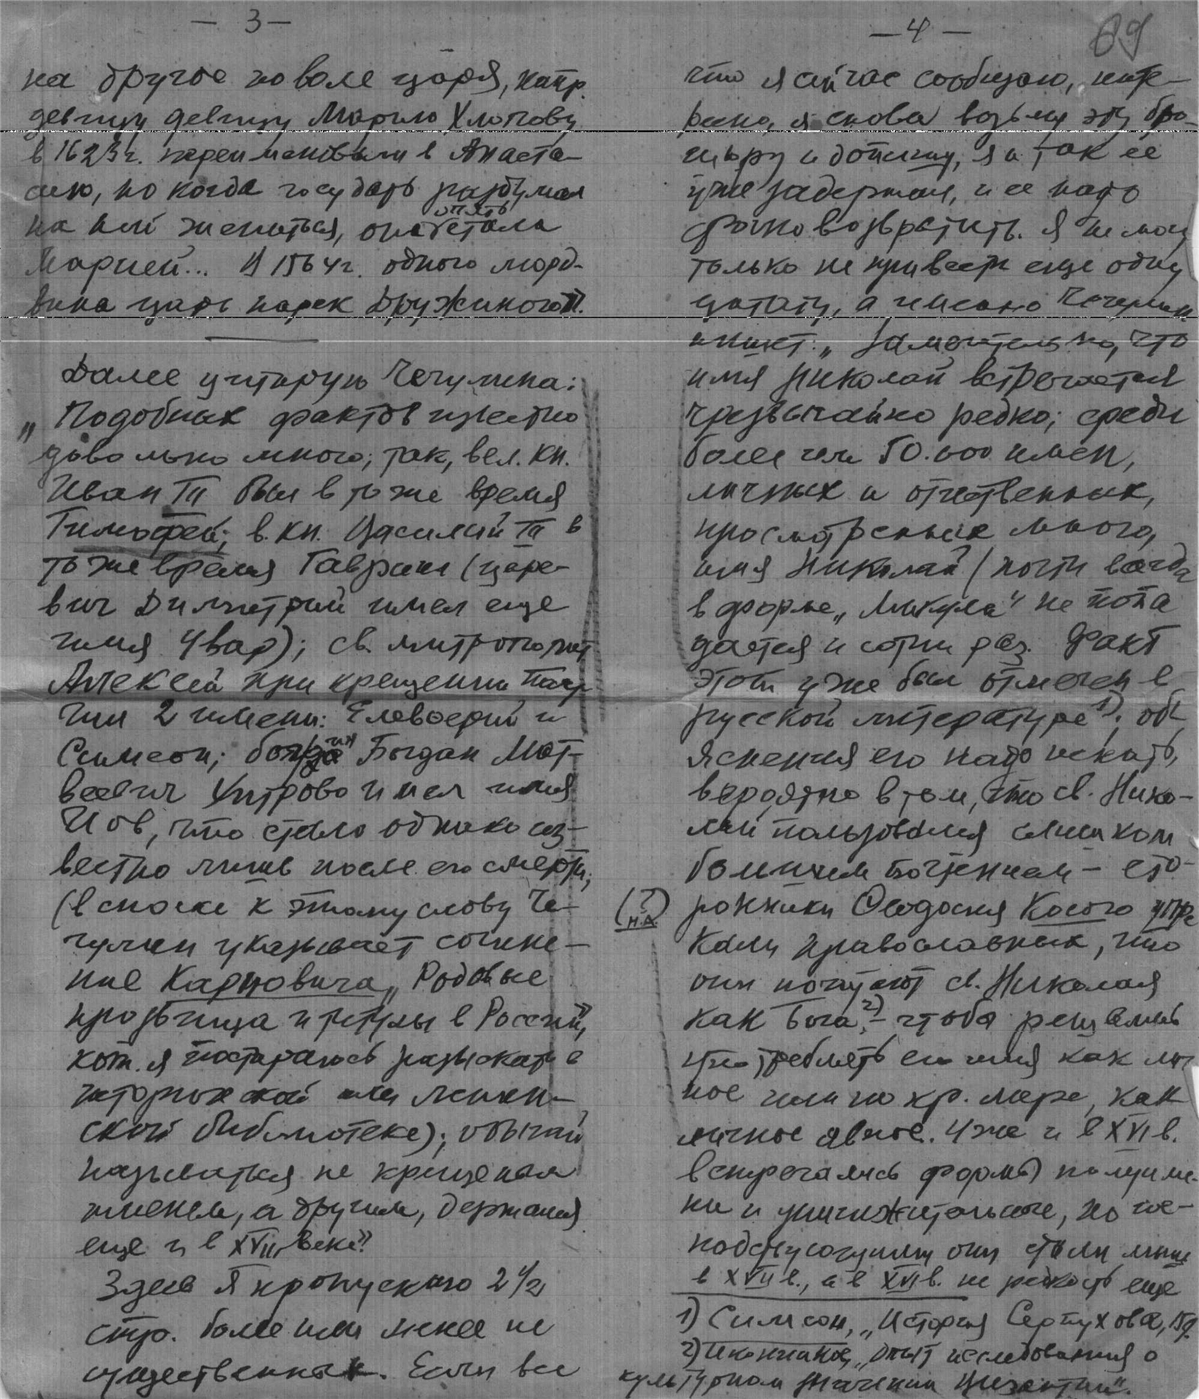 — 3 —
на другое по воле царя, напр.
девицу девицу Марию Хлопову
в 1623 г. переименовали в Анаста-
сию, но когда государь раздумал
на ней жениться, она стала
опять
Марией... А 1564 г. одного морд-
вина царь нарек Дружиною".
Далее цитирую Чечулина:
„Подобных фактов известно
довольно много; так, вел. кн.
Иван III был в то же время
Тимофей; в. кн. Василий III в
то же время Гавриил (царе-
вич Димитрий имел еще
имя Уар); св. митрополит
Алексей при крещении полу-
чил 2 имени: Елевферий и
Симеон; боярин Богдан Мат-
веевич Хитрово имел имя
Иов, что стало однако из-
вестно лишь после его смерти;
(в сноске к этому слову Че-
чулин указывает сочине-
ние Карновича „Родовые
прозвища и титулы в России",
кот. я постараюсь разыскать в
исторической или ленин-
ской библиотеке); обычай
называться не крещеным
именем, а другим, держался
еще и в XVII веке".
Здесь я пропускаю 2 1/2
стр. более или менее не
существенных. Если все
— 4 —
69
что я сейчас сообщаю, инте-
ресно, я снова возьму эту бро-
шюру и допишу, я и так ее
уже задержал, и ее надо
срочно возвратить. Я не могу
только не привести еще одну
цитату, а именно Чечулин
пишет: „Замечательно, что
имя Николай встречается
чрезвычайно редко; среди
более чем 50.000 имен,
личных и отчественных,
просмотренных много,
имя Николай (почти всегда
в форме „Микула" не попа
дается и сотни раз. Факт
этот уже был отмечен в
русской литературе 1); объ
яснения его надо искать,
вероятно в том, что св. Нико-
лай пользовался слишком
большим почтением — сто-
(?) ронники Феодосия Косого упре
н.д.
кали православных, что
они почитают св. Николая
как Бога, 2) — чтобы решались
употреблять его имя как лич
ное или по кр. мере, как
личное явное. Уже и в XVI в.
встречались формы полуиме-
ни и уничижительные, но го-
подствующими они стали лишь
в XVII в., а в XVI в. не редкость еще
1) Симсон, „История Серпухова",
2) Иконников, „Опыт исследования о
культурном значении Византии"